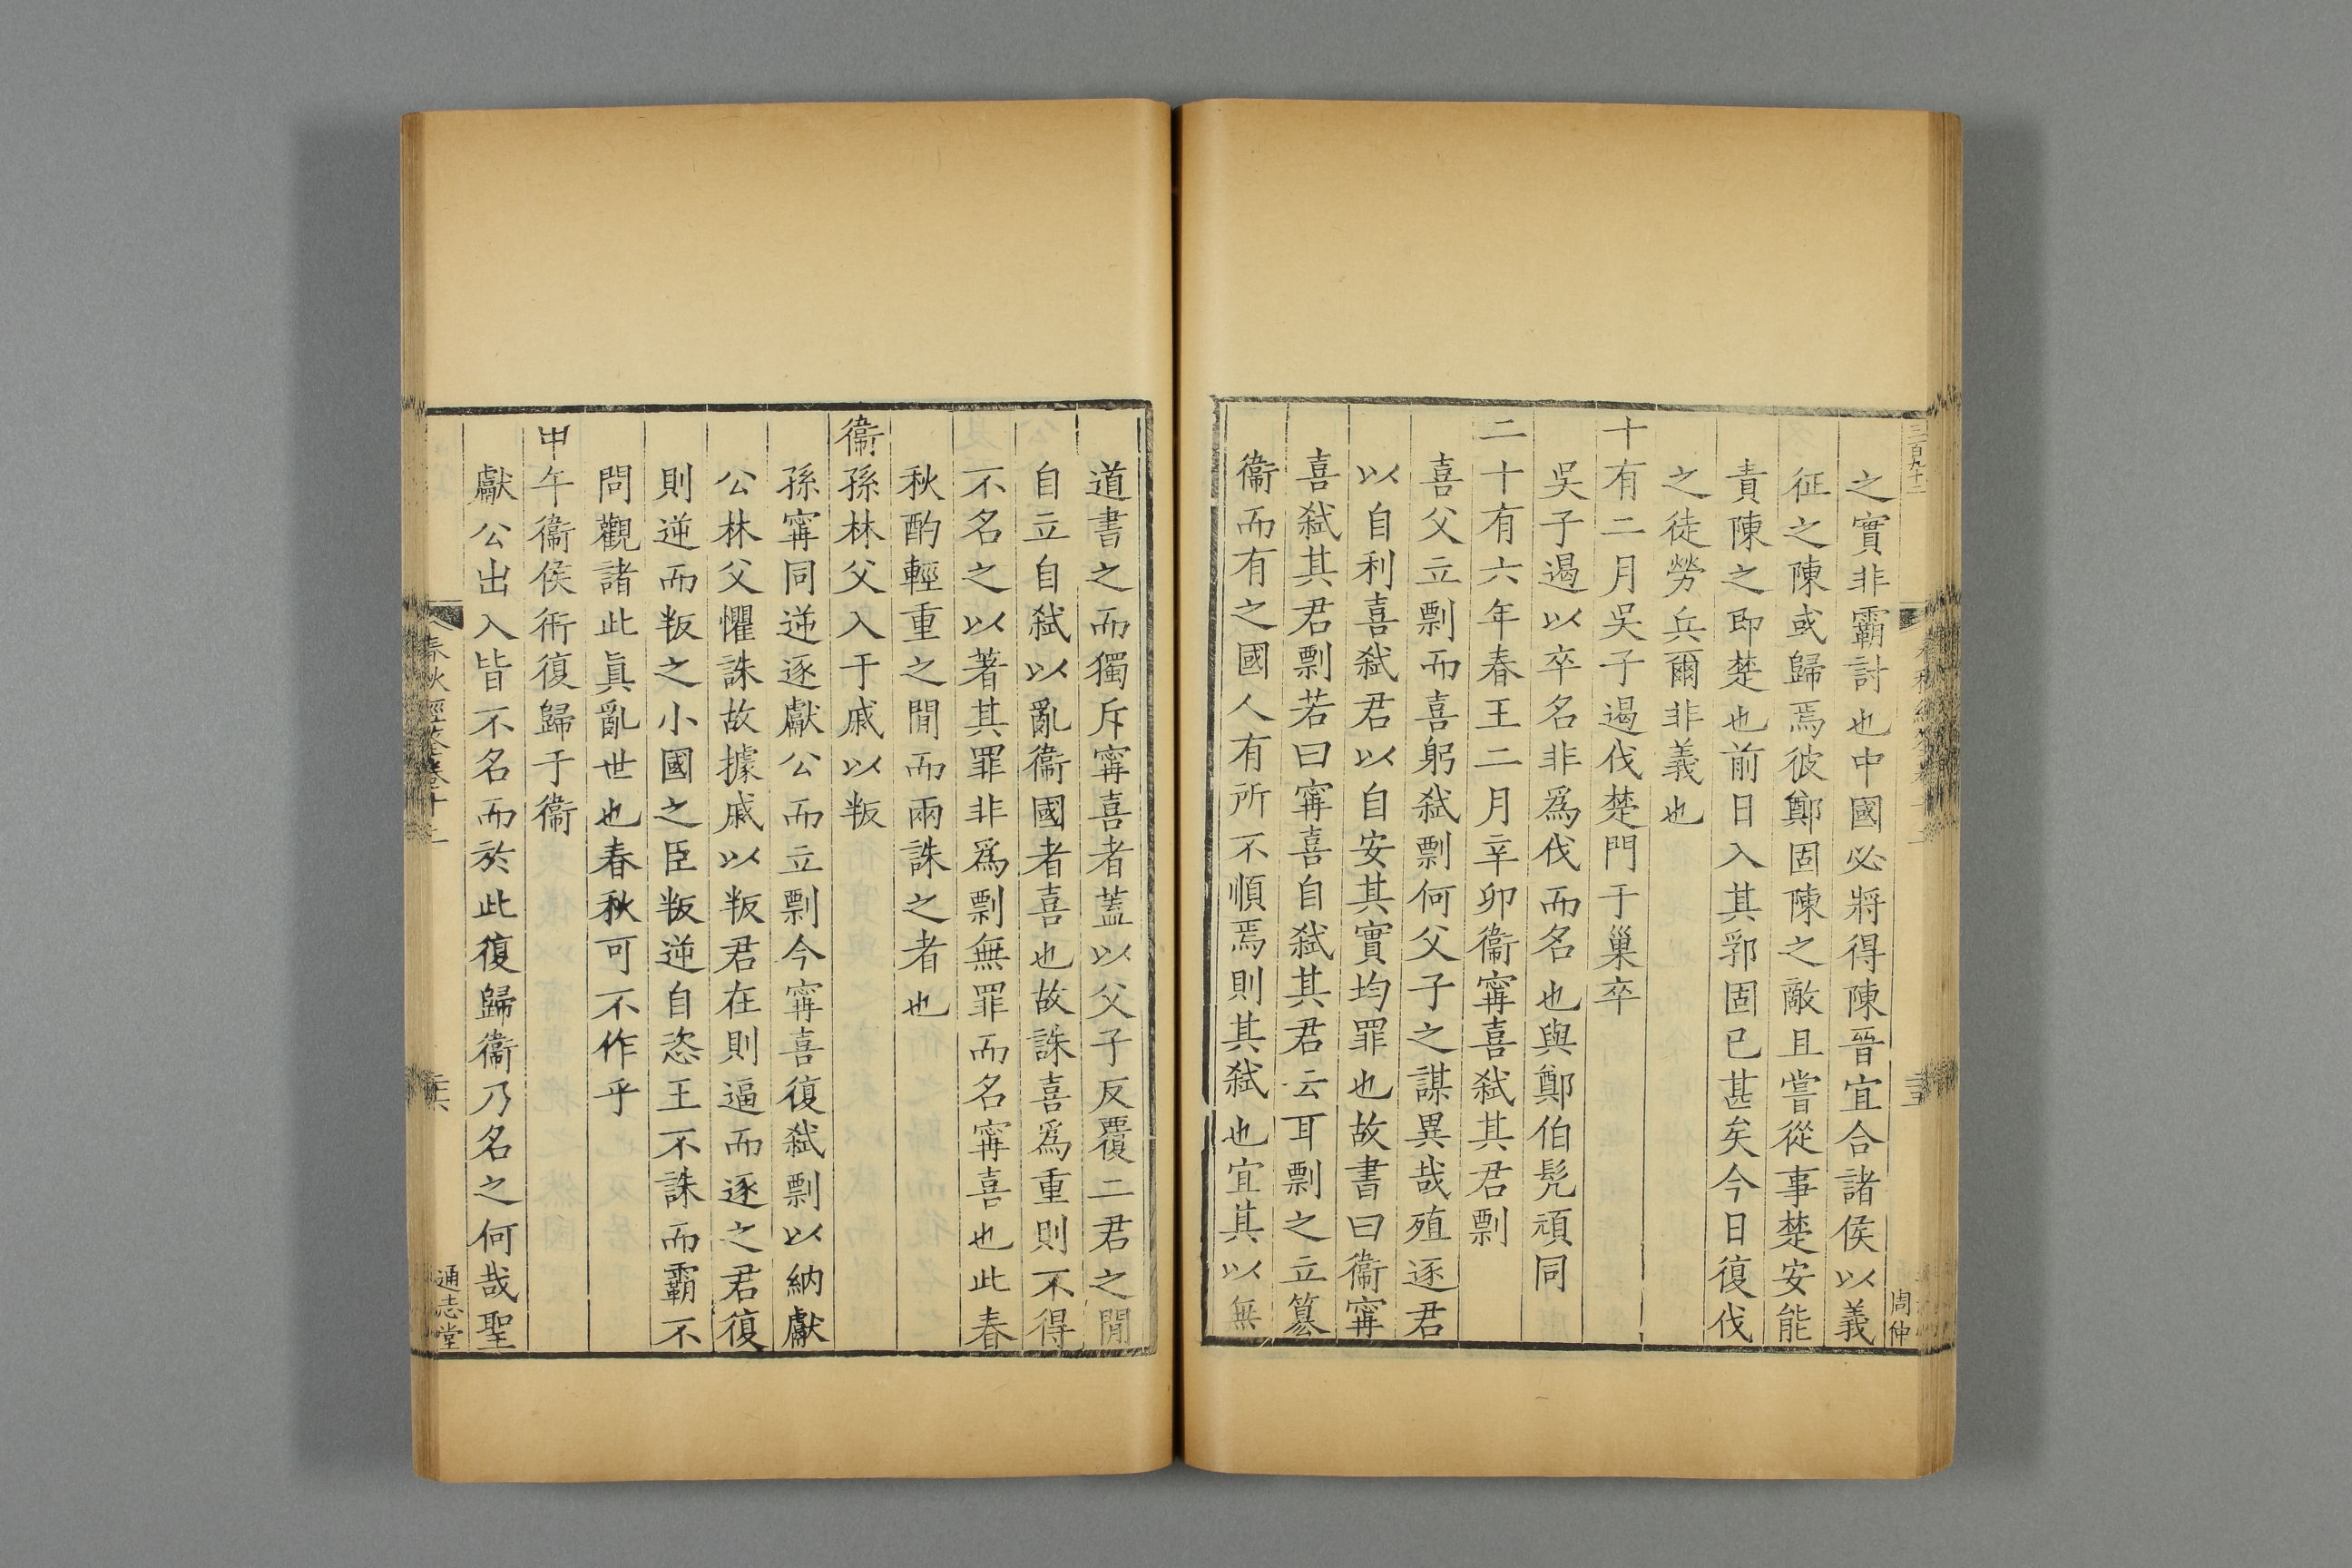 三百九十二
周仲
之實非霸討也中國必將得陳晉宜合諸侯以義
征之陳或歸焉彼鄭固陳之敵且嘗從事楚安能
責陳之即楚也前日入其郛固已甚矣今日復伐
之徒勞兵爾非義也
十有二月吳子遏伐楚門于巢卒
吳子遏以卒名非爲伐而名也與鄭伯髡頑同
二十有六年春王二月辛卯衞甯喜弑其君剽
喜父立剽而喜躬弑剽何父子之謀異哉殖逐君
以自利喜弑君以自安其實均罪也故書曰衞甯
喜弑其君剽若曰甯喜自弑其君云耳剽之立簒
衞而有之國人有所不順焉則其弑也宜其以無
道書之而獨斥甯喜者蓋以父子反覆二君之閒
自立自弑以亂衞國者喜也故誅喜爲重則不得
不名之以著其罪非爲剽無罪而名甯喜也此春
秋酌輕重之閒而兩誅之者也
衞孫林父入于戚以叛
孫甯同逆逐獻公而立剽今甯喜復弑剽以納獻
公林父懼誅故據戚以叛君在則逼而逐之君復
則逆而叛之小國之臣叛逆自恣王不誅而霸不
問觀諸此眞亂世也春秋可不作乎
甲午衞侯衎復歸于衞
獻公出入皆不名而於此復歸衞乃名之何哉聖
春秋經筌卷十二
二十六
通志堂